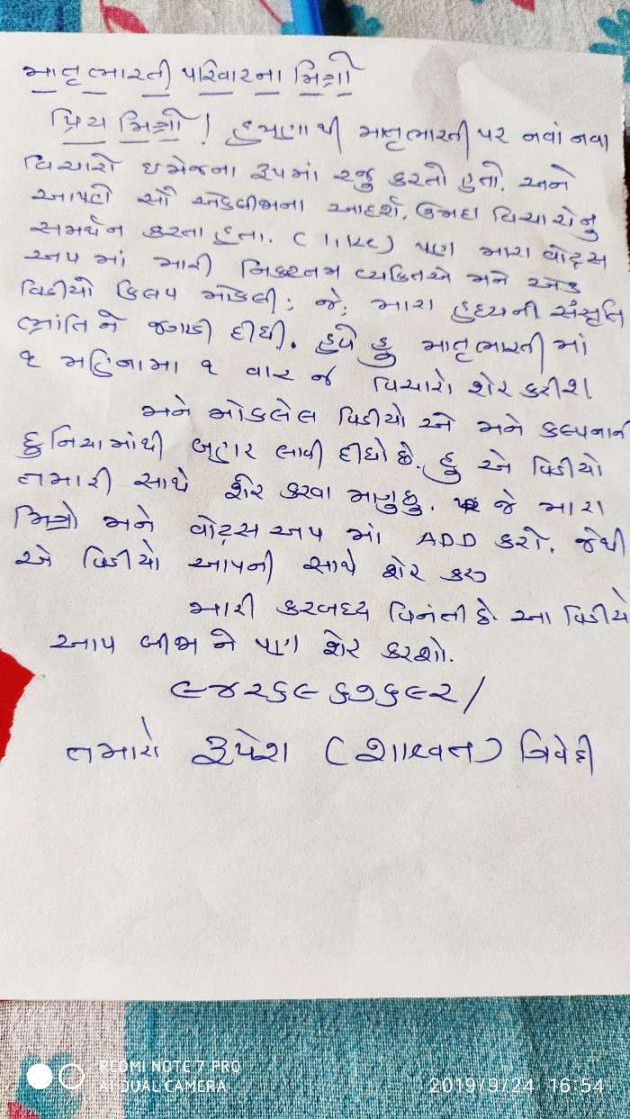 માતૃભારતી પરિવારના મિત્રો
પ્રિય મિત્રો! હમણાથી માતૃભારતી પર નવાં નવા
વિચારો ઇમેજના રૂપમાં રજુ કરતો હતો. અને
આપણે સૌ એકબીજાના આદર્શ, ઉમદા વિચારોનુ
સમર્થન કરતા હતા. (Like) પણ મારા વોટ્સ
અપ માં મારી નિકટતમ વ્યક્તિએ મને એક
વિડીયો ક્લિપ મોકલી; જે; મારા હ્રદયની સંસ્કૃતિ
ભ્રાંતિ ને જગાડી દીધી. હવે હુ માતૃભારતી માં
૧ મહિનામા ૧ વાર જ વિચારો શેર કરીશ
મને મોકલેલ વિડીયો એ મને કલ્પનાની
દુનિયામાંથી બહાર લાવી દીધો છે. હુ એ વિડીયો
તમારી સાથે શેર કરવા માગુછુ. જે મારા
મિત્રો મને વોટ્સઅપ માં ADD કરો. જેથી
એ વિડીયો આપની સાથે શેર કરુ
મારી કરબધ્ધ વિનંતી છે. આ વિડીયો
આપ બીજા ને પણ શેર કરશો.
૯૪૨૬૯૬૭૬૯૨/
તમારો રૂપેશ (શાશ્વત) ત્રિવેદી
REDMI NOTE 7 PRO
AI DUAL CAMERA
2019/9/24 16:54